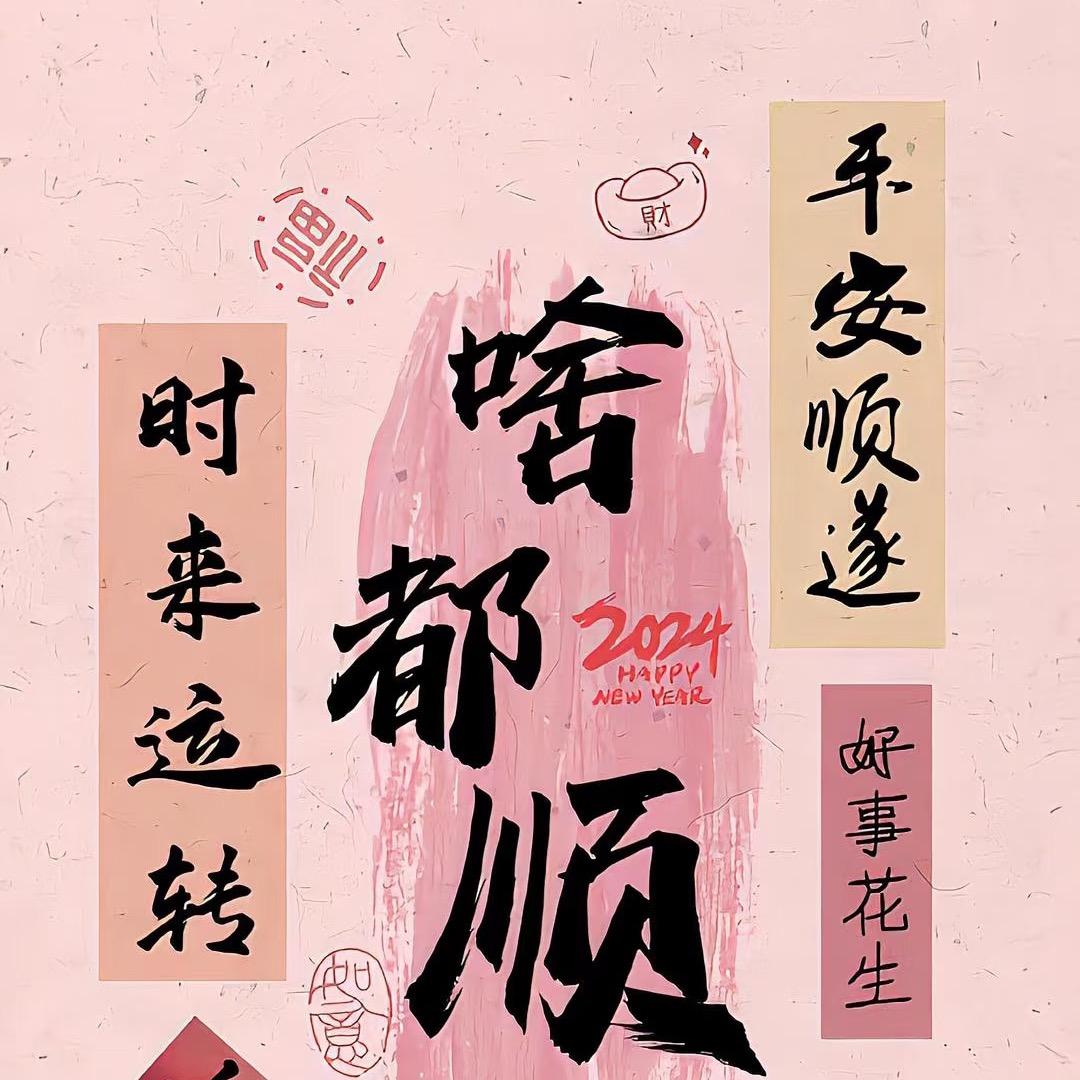 平安顺遂
財
福
啥都顺
时来运转
2024
HAPPY
NEW YEAR
好事花生
如意